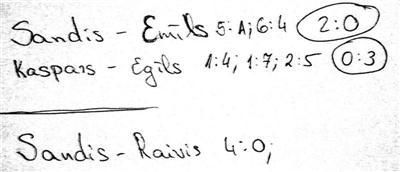 Sandis - Emīls 5:1; 6:4 2:0
Kaspars - Egīls 1:4; 1:7; 2:5 0:3
Sandis - Raivis 4:0;